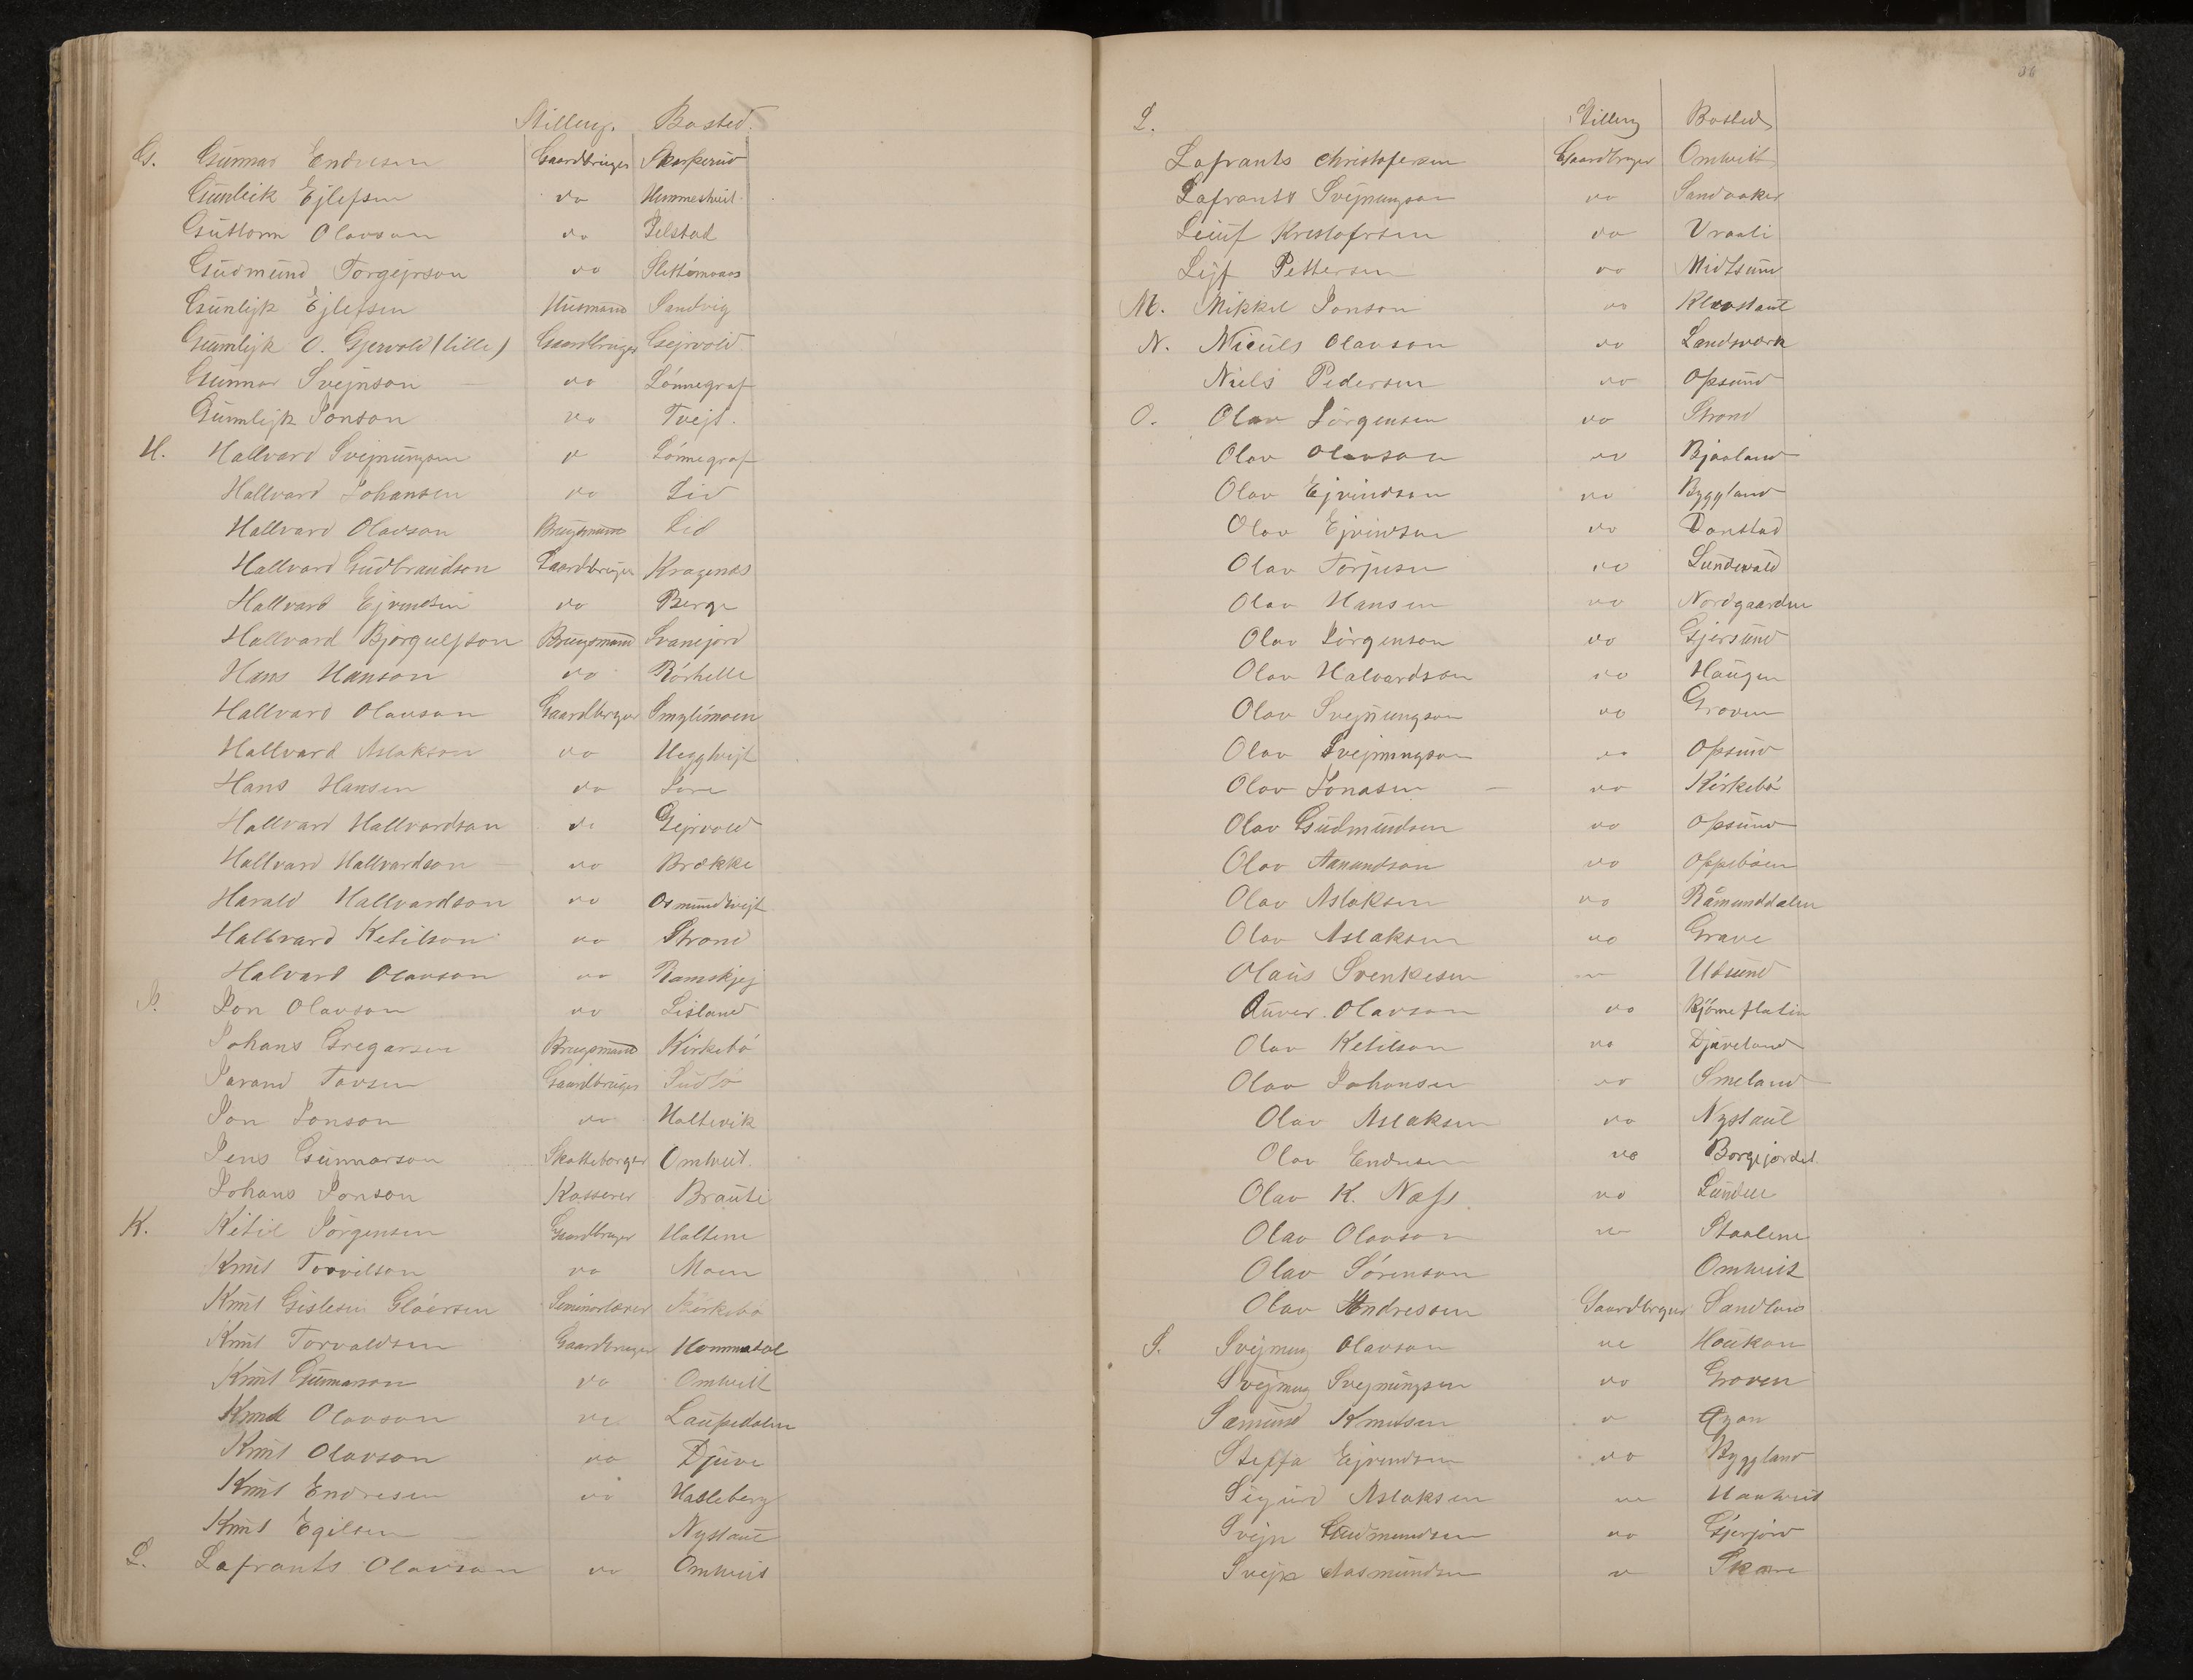 Stilling. Bosted.
G. Gunnar Endresen Gaardbruger Skarperud
Gunleik Ejlefsen do Hemmestveit
Guttorm Olavson do Jelstad
Gudmund Torgejrson do
Gunlejk Ejlefsen Husmand Sandvig
Gunnlejk O. Gjervold (lille) Gaardbruger Gejrvold
Gunnar Svejnson do Lönnegraf
Gunnlejk Jonson do Tvejt.
H. Hallvard Svejnungson do Lönnegraf
Hallvard Johansen do Lid
Hallvard Olavson Brugsmand Lid
Hallvard Gudbrandson Gaardbruger Kragenæs
Hallvard Ejvindsen do Berge
Hallvard Bjørgulfson Brugsmand Svanejord
Hans Hanson do Rörhelle
Hallvard Olavson Gaardbruger
Hallvard Aslakson do Heggtvejt
Hans Hansen do
Hallvard Hallvardson do Gejrvold
Hallvard Hallvardson do Brække
Harald Hallvardson do Ormundtvejt
Hallvard Ketilson do Strand
Halvard Olavson do Ramskjej
J. Jon Olavson do Lisland
Johans Gregarsen Brugsmand Kirkebö
Jarand Tovsen Gaardbruger
Jon Jonson do Haltevik
Jens Gunnarson Skatteborger Omtveit.
Johans Jonson Kasserer Brauti
K. Ketil Jörgensen Gaardbruger Haltene
Knut Torvilson do Moen
Knut Gislesen Glóersen Seminarlærer Kirkebö
Knut Torvaldsen Gaardbruger
Knut Gunnarson do Omtveit
Knut Olavson do Laupedalen
Knut Olavson do Djuve
Knut Endresen do Hasleberg
Knut Egilsen Nystaul
L. Lafrants Olavson do Omtveit
36
L. Stilling Bosted
Lafrants Christofersen Gaardbruger Omtveit
Lafrants Svejnungson do Sandaaker
Leiuf Kristofersen do Vraali
Lejf Pettersen do Midtsund
M. Mikkel Jonson do
N. Niculs Olavson do Landsverk
Niels Pedersen do Opsund
O. Olav Jörgensen do Strand
Olav Olavson do Bjaaland
Olav Ejvindson do Byggland
Olav Ejvindsen do Danstad
Olav Torjusen do Lundevald
Olav Hansen do Nordgaarden
Olav Jörgenson do Gjersund
Olav Halvardson do Haugen
Olav Svejnungson do Groven
Olav Svejnungson do Opsund
Olav Jonasen do Kirkebö
Olav Gudmundsen do Opsund
Olav Aanundson do Oppeböen
Olav Aslaksen do Råmunddalen
Olav Aslaksen do Grave
Olaus Svenkesen do Utsund
Auver. Olavson do Björneflatin
Olav Ketilson do Djuveland
Olav Johansen do Smeland
Olav Aslaksen do Nystaul
Olav Endresen do Borgejordet
Olav K. Næss. do Lunden
Olav Olavson do Staalene
Olav Sörenson Omtveit
Olav Andressen Gaardbruger Sandland
S. Svejnung Olavson do Haukon
Svejnung Svejnungsen do Groven
Sæmund Knutsen do
Steffa Ejvindsen do Byggland
Sigurd Aslaksen do
Svejn Gudmundsen do Gjerjord
Svejn Aasmundsen do